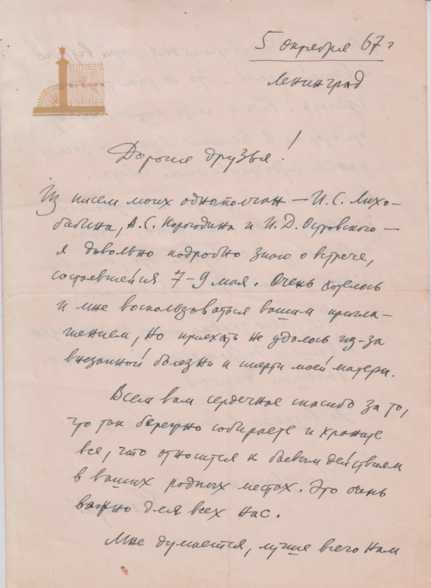 5 октября 67 г
Ленинград
Дорогие друзья!
Из писем моих однополчан — И.С. Лихо-
бабина, А.С. Корогодина и И.Д. Островского —
я довольно подробно знаю о встрече,
состоявшейся 7-9 мая. Очень хотелось
и мне воспользоваться вашим пригла-
шением, но приехать не удалось из-за
внезапной болезни и смерти моей матери.
Всем вам сердечное спасибо за то,
что так бережно собираете и храните
все, что относится к боевым действиям
в ваших родных местах. Это очень
важно для всех нас.
Мне думается, лучше всего нам